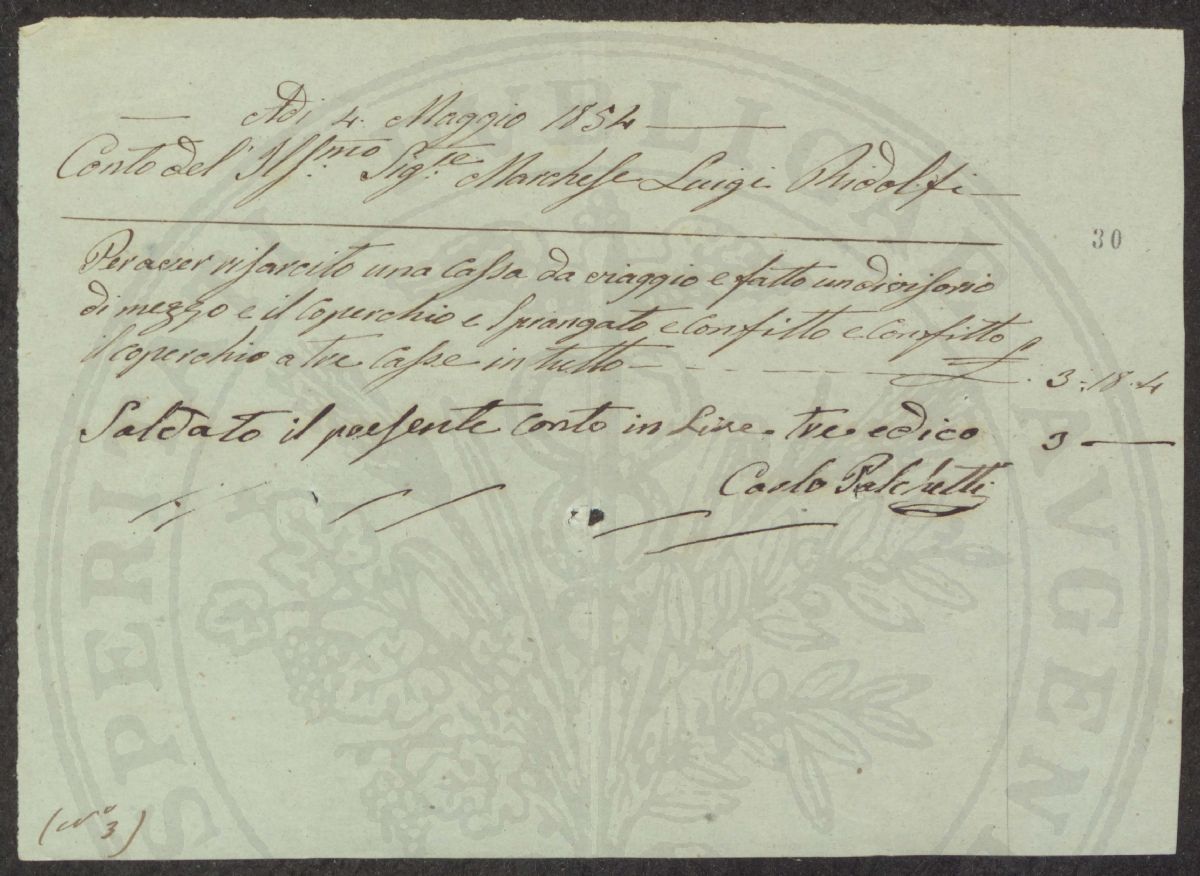 Adi 4. Maggio 1854
Conto del' Ills.mo Sig.re Marchese Luigi Ridolfi
30
Per aver risarcito una Cassa da viaggio e fatto un divisorio
di mezzo e il Coperchio e Sprangato e Confitto e Confitto
il Coperchio a tre Casse in tutto £. 3.18.4
Saldato il presente Conto in Lire tre e dico 3
Carlo Palchetti
(N.o 3)